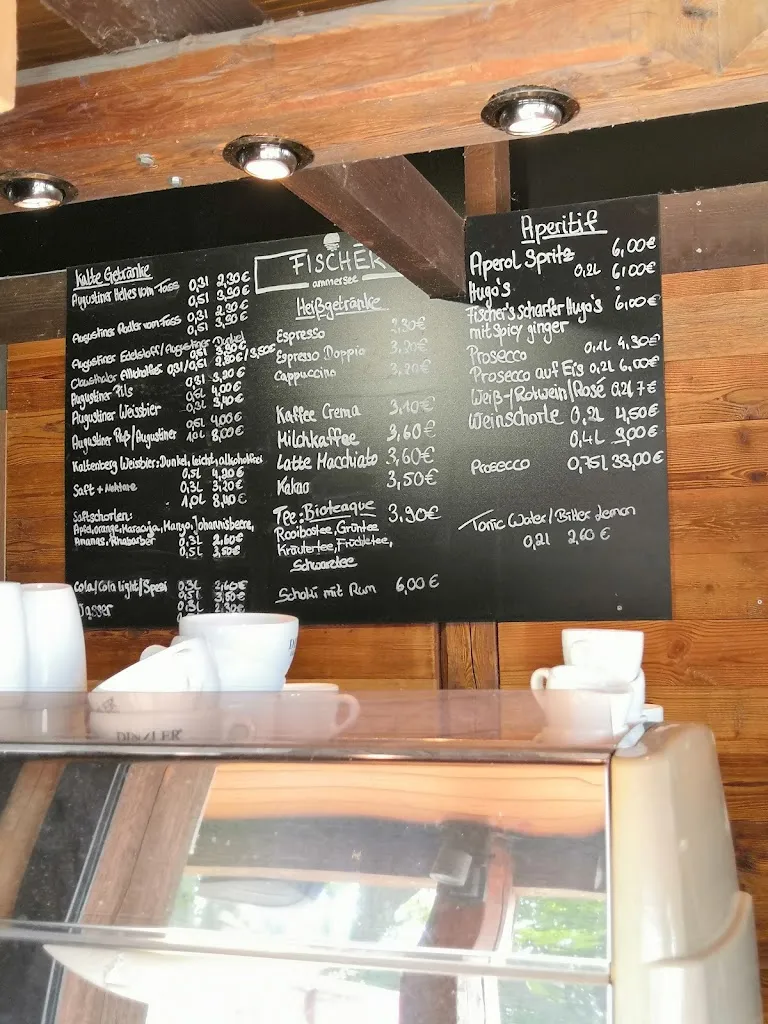 Kalte Getränke
Augustiner Helles vom Fass 0,3l 2,90€
0,5l 3,90€
Augustiner Radler vom Fass 0,3l 2,90€
0,5l 3,90€
Augustiner Edelstoff/Augustiner Dunkel
0,5l 3,90€
Clausthaler Alkoholfrei 0,3l/0,5l 2,90€/3,50€
Augustiner Pils 0,3l 3,20€
0,5l 4,00€
Augustiner Weissbier 0,3l 3,40€
0,5l 4,00€
Augustiner 1,0L 8,00€
Kaltenberg Weissbier: Dunkel, leicht, alkoholfrei
0,5l 4,20€
Saft + Nektare 0,3l 3,20€
1,0l 8,40€
Saftschorlen:
Apfel, orange, Maracuja, Mango, Johannisbeere,
Ananas, Rhabarber 0,3l 2,60€
0,5l 3,50€
Cola/Cola light/Spezi 0,3l 2,60€
0,5l 3,50€
Wasser 0,3l 2,30€
FISCHER
ammersee
Heißgetränke
Espresso
Espresso Doppio 3,20€
Cappuccino 3,20€
Kaffee Crema 3,10€
Milchkaffee 3,60€
Latte Macchiato 3,60€
Kakao 3,50€
Tee: Bioteaque 3,90€
Rooibostee, Grüntee
Kräutertee, Früchtetee,
Schwarztee
Schoki mit Rum 6,00€
Aperitif
Aperol Spritz 6,00€
Hugo's 0,2l 6,00€
Fischer's scharfer Hugo's 6,00€
mit Spicy ginger
Prosecco 0,1l 4,30€
Prosecco auf Eis 0,2l 6,00€
Weiß-/Rotwein/Rosé 0,2l 7€
Weinschorle 0,2l 4,50€
0,4l 9,00€
Prosecco 0,75l 33,00€
Tonic Water/Bitter Lemon
0,2l 2,60€
DINZLER